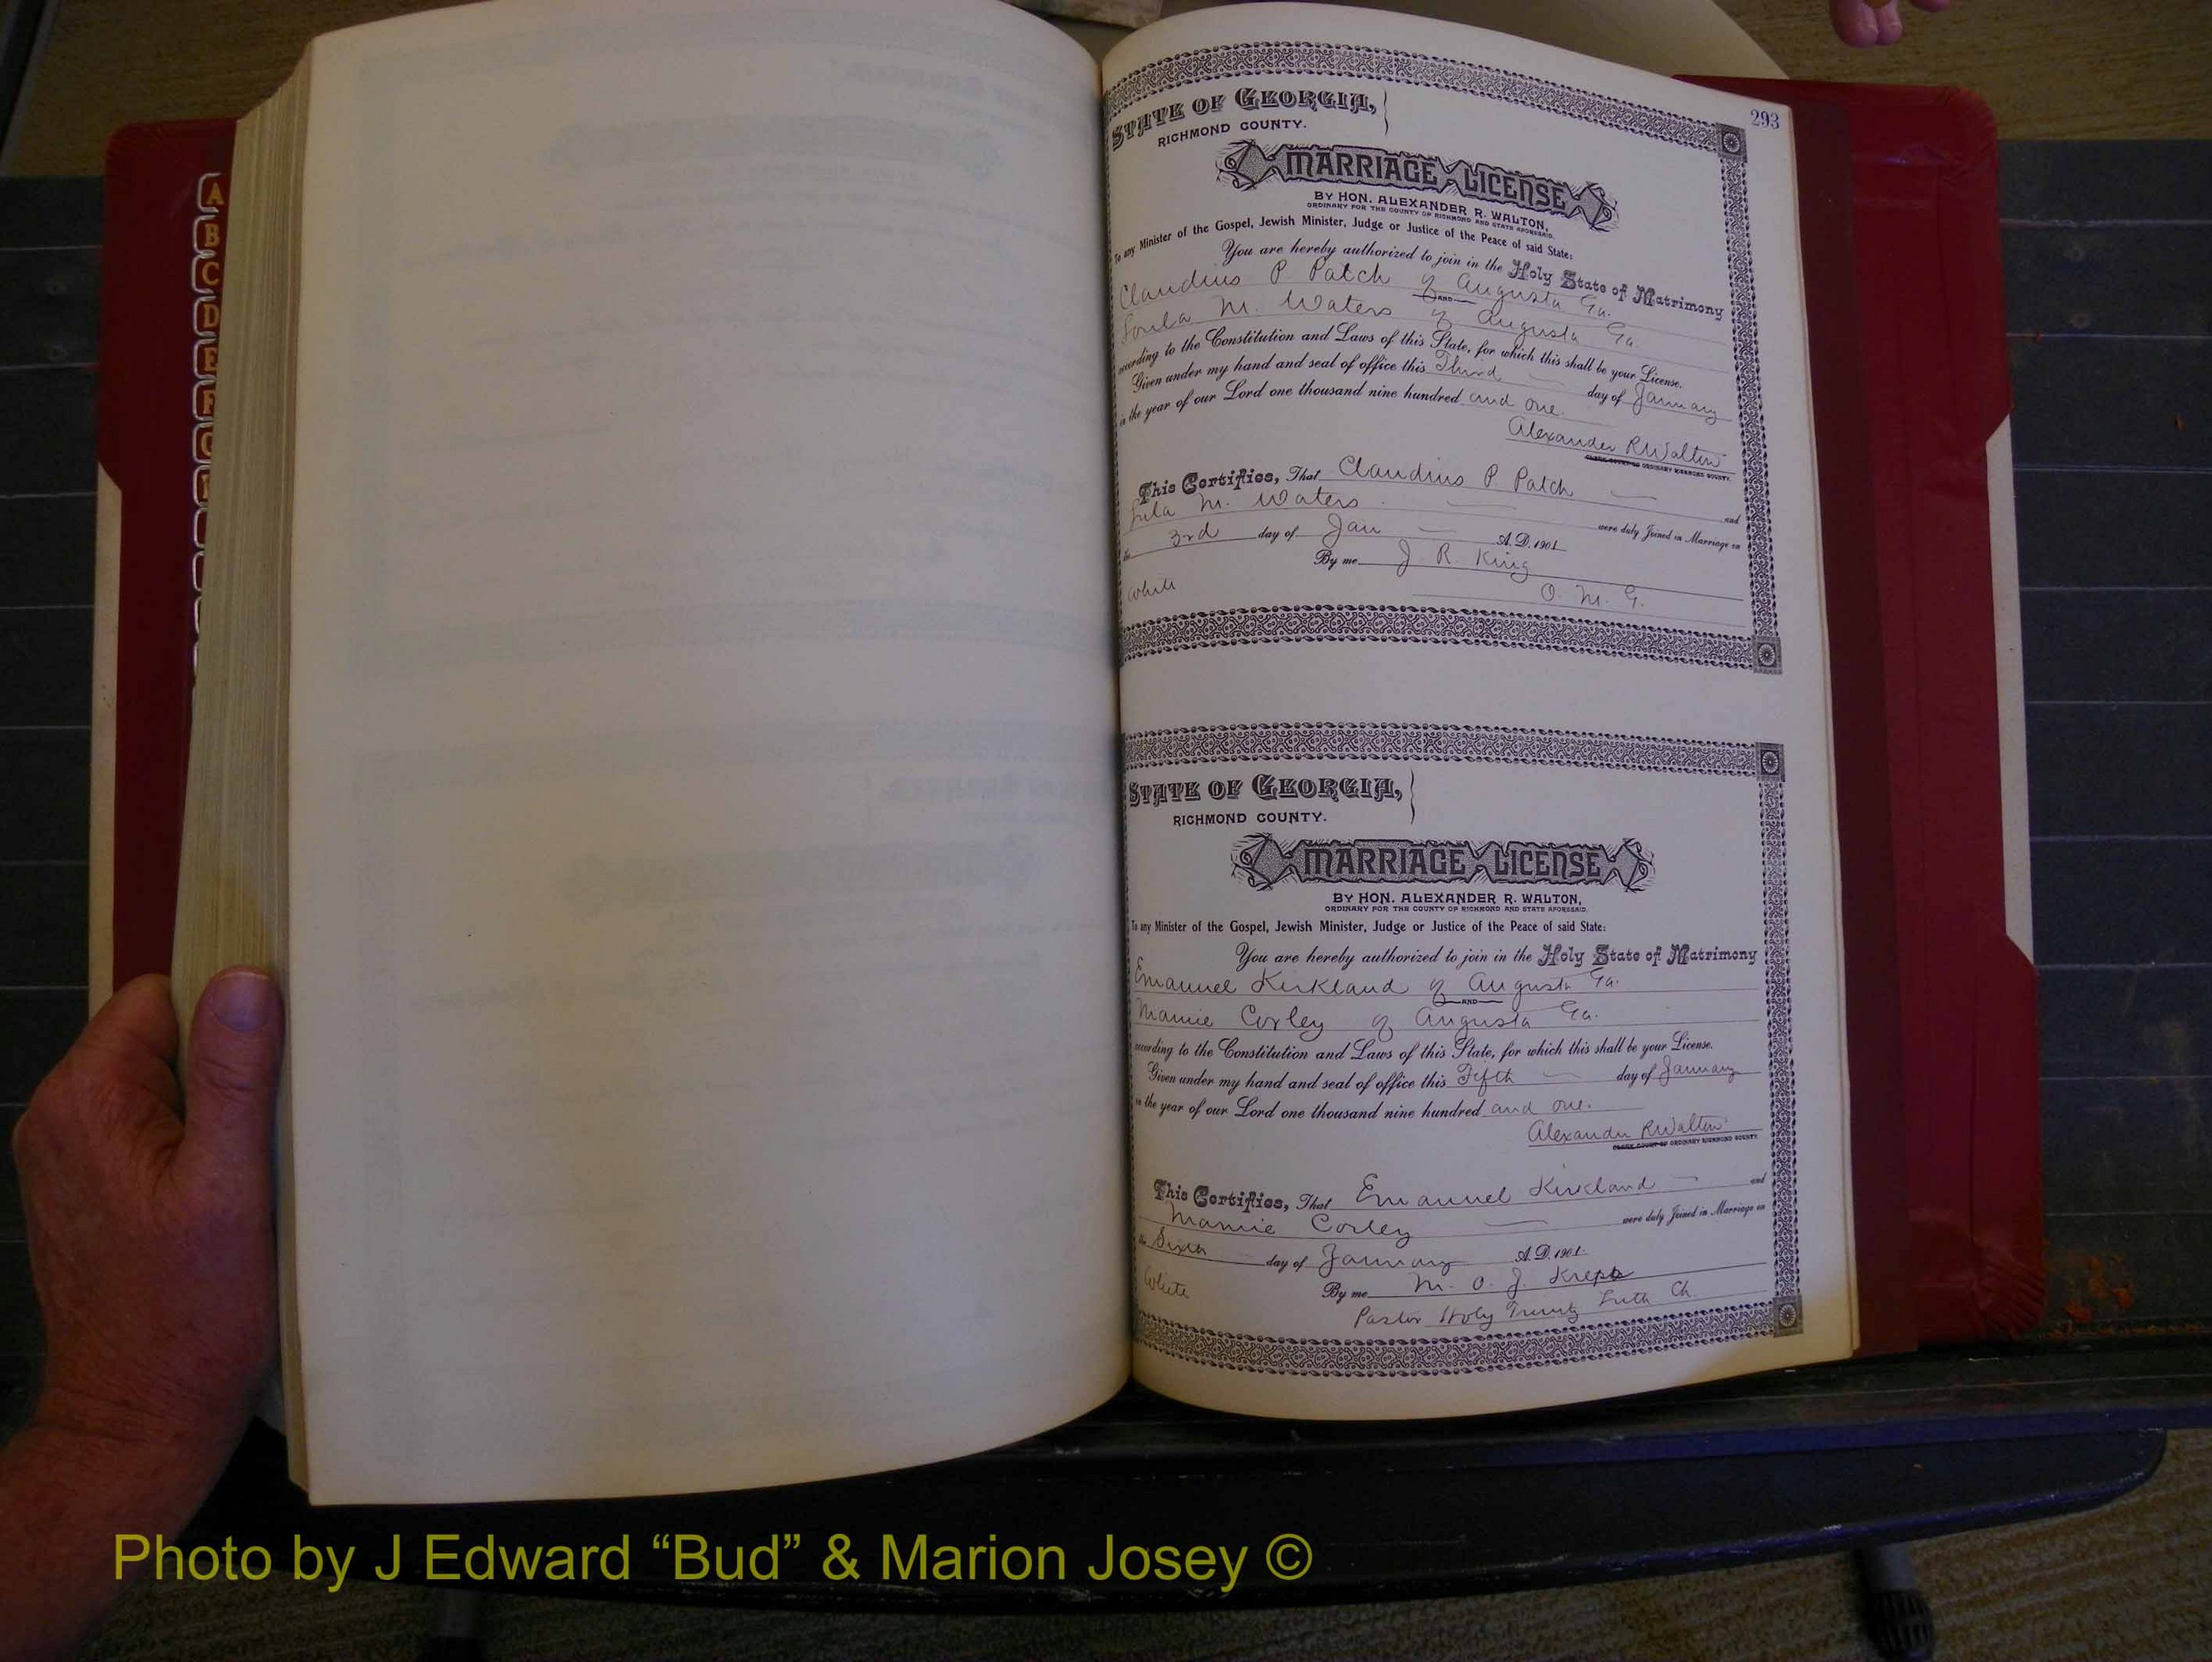 293
STATE OF GEORGIA,
RICHMOND COUNTY.
MARRIAGE LICENSE
BY HON. ALEXANDER R. WALTON,
ORDINARY FOR THE COUNTY OF RICHMOND AND STATE AFORESAID.
To any Minister of the Gospel, Jewish Minister, Judge or Justice of the Peace of said State:
You are hereby authorized to join in the Holy State of Matrimony
Claudius P. Patch of Augusta Ga.
AND
M. Waters of Augusta Ga.
according to the Constitution and Laws of this State, for which this shall be your License.
Given under my hand and seal of office this Third day of January
in the year of our Lord one thousand nine hundred and one.
Alexander R Walton
CLERK COURT OF ORDINARY RICHMOND COUNTY.
This Certifies, That Claudius P Patch and
Lula M. Waters were duly Joined in Marriage on
the 3rd day of Jan A. D. 1901
By me J. R. King
White O. M. G.
STATE OF GEORGIA,
RICHMOND COUNTY.
MARRIAGE LICENSE
BY HON. ALEXANDER R. WALTON,
ORDINARY FOR THE COUNTY OF RICHMOND AND STATE AFORESAID.
To any Minister of the Gospel, Jewish Minister, Judge or Justice of the Peace of said State:
You are hereby authorized to join in the Holy State of Matrimony
Emanuel Kirkland of Augusta Ga.
AND
Mamie Corley of Augusta Ga.
according to the Constitution and Laws of this State, for which this shall be your License.
Given under my hand and seal of office this Fifth day of January
in the year of our Lord one thousand nine hundred and one.
Alexander R Walton
CLERK COURT OF ORDINARY RICHMOND COUNTY
This Certifies, That Emanuel Kirkland and
Mamie Corley were duly Joined in Marriage on
the Sixth day of January A. D. 1901
White By me M. O. J. Kreps
Pastor Holy Trinity Luth Ch.
A
B
C
D
E
F
G
Photo by J Edward “Bud” & Marion Josey ©